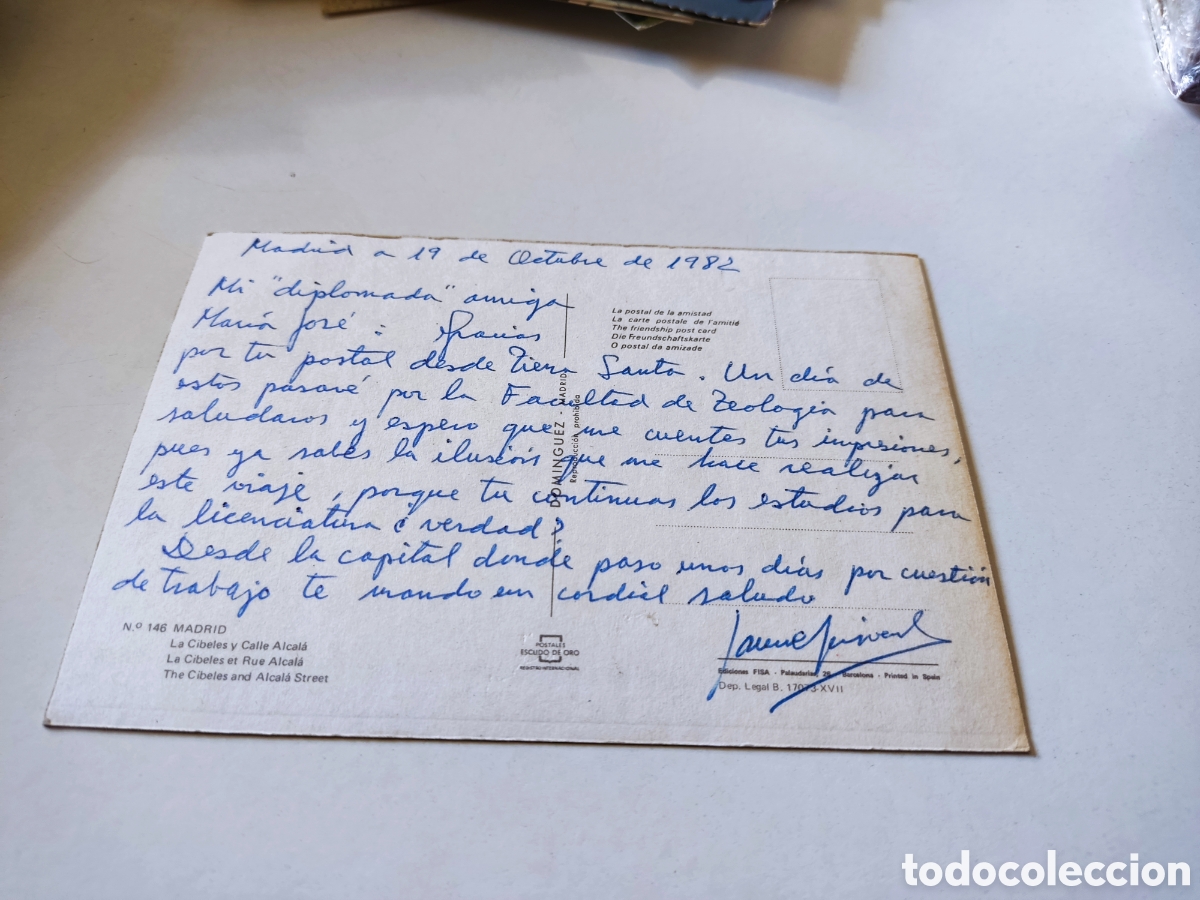 Madrid a 19 de Octubre de 1982
Mi "diplomada" amiga
María José: Gracias
por tu postal desde Tierra Santa. Un día de
estos pasaré por la Facultad de Teología para
saludaros y espero que me cuentes tus impresiones,
pues ya sabes la ilusión que me hace realizar
este viaje, porque tu continuas los estudios para
la licenciatura ¿verdad?
Desde la capital donde paso unos días por cuestión
de trabajo te mando un cordial saludo
La postal de la amistad
La carte postale de l'amitié
The friendship post card
Die Freundschaftskarte
O postal da amizade
DOMINGUEZ - MADRID
Reproducción prohibida
N.º 146 MADRID
La Cibeles y Calle Alcalá
La Cibeles et Rue Alcalá
The Cibeles and Alcalá Street
POSTALES
ESCUDO DE ORO
REGISTRO INTERNACIONAL
Ediciones FISA - Palaudarias, 26 - Barcelona - Printed in Spain
Dep. Legal B. 17073-XVII
todocoleccion